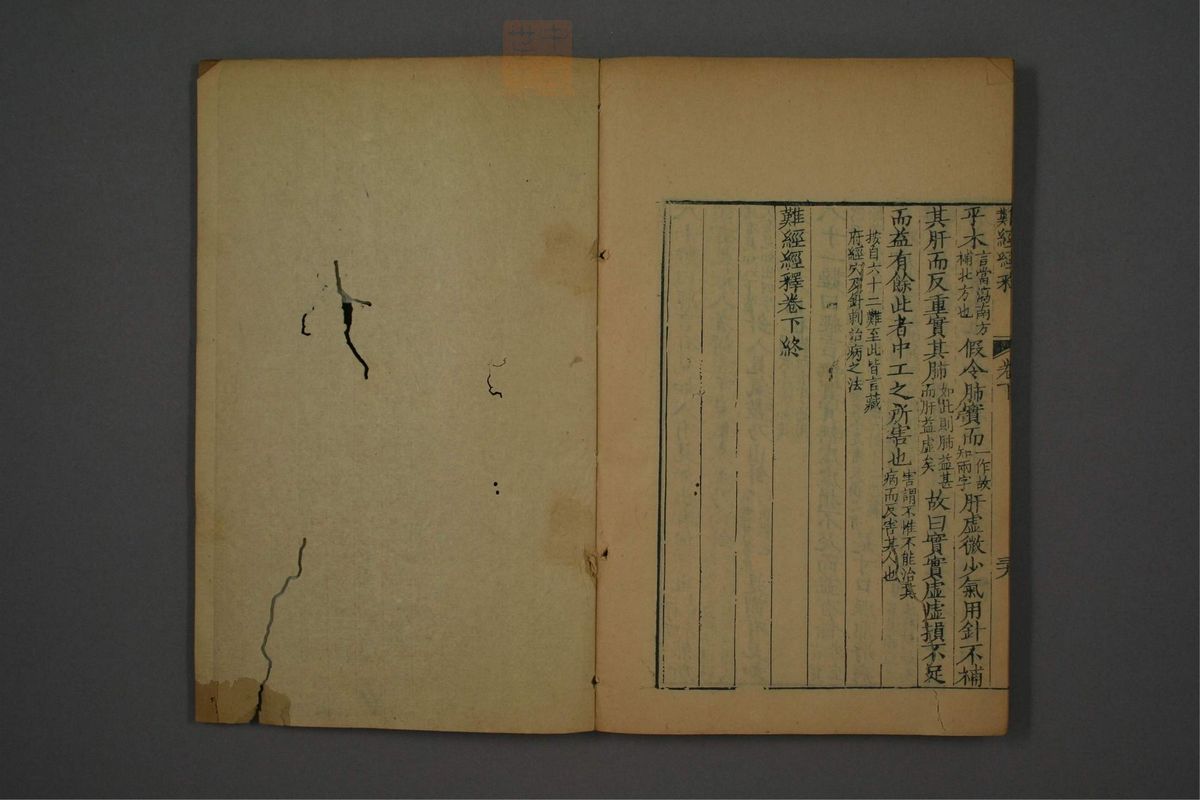 難經經釋 卷下 三六
平木言當瀉南方補北方也假令肺實而一作故知兩字肝虛微少氣用針不補
其肝而反重實其肺如此則肺益甚而肝益虛矣故曰實實虛虛損不足
而益有餘此者中工之所害也害謂不惟不能治其病而反害其人也
按自六十二難至此皆言藏
府經穴及針刺治病之法
難經經釋卷下終